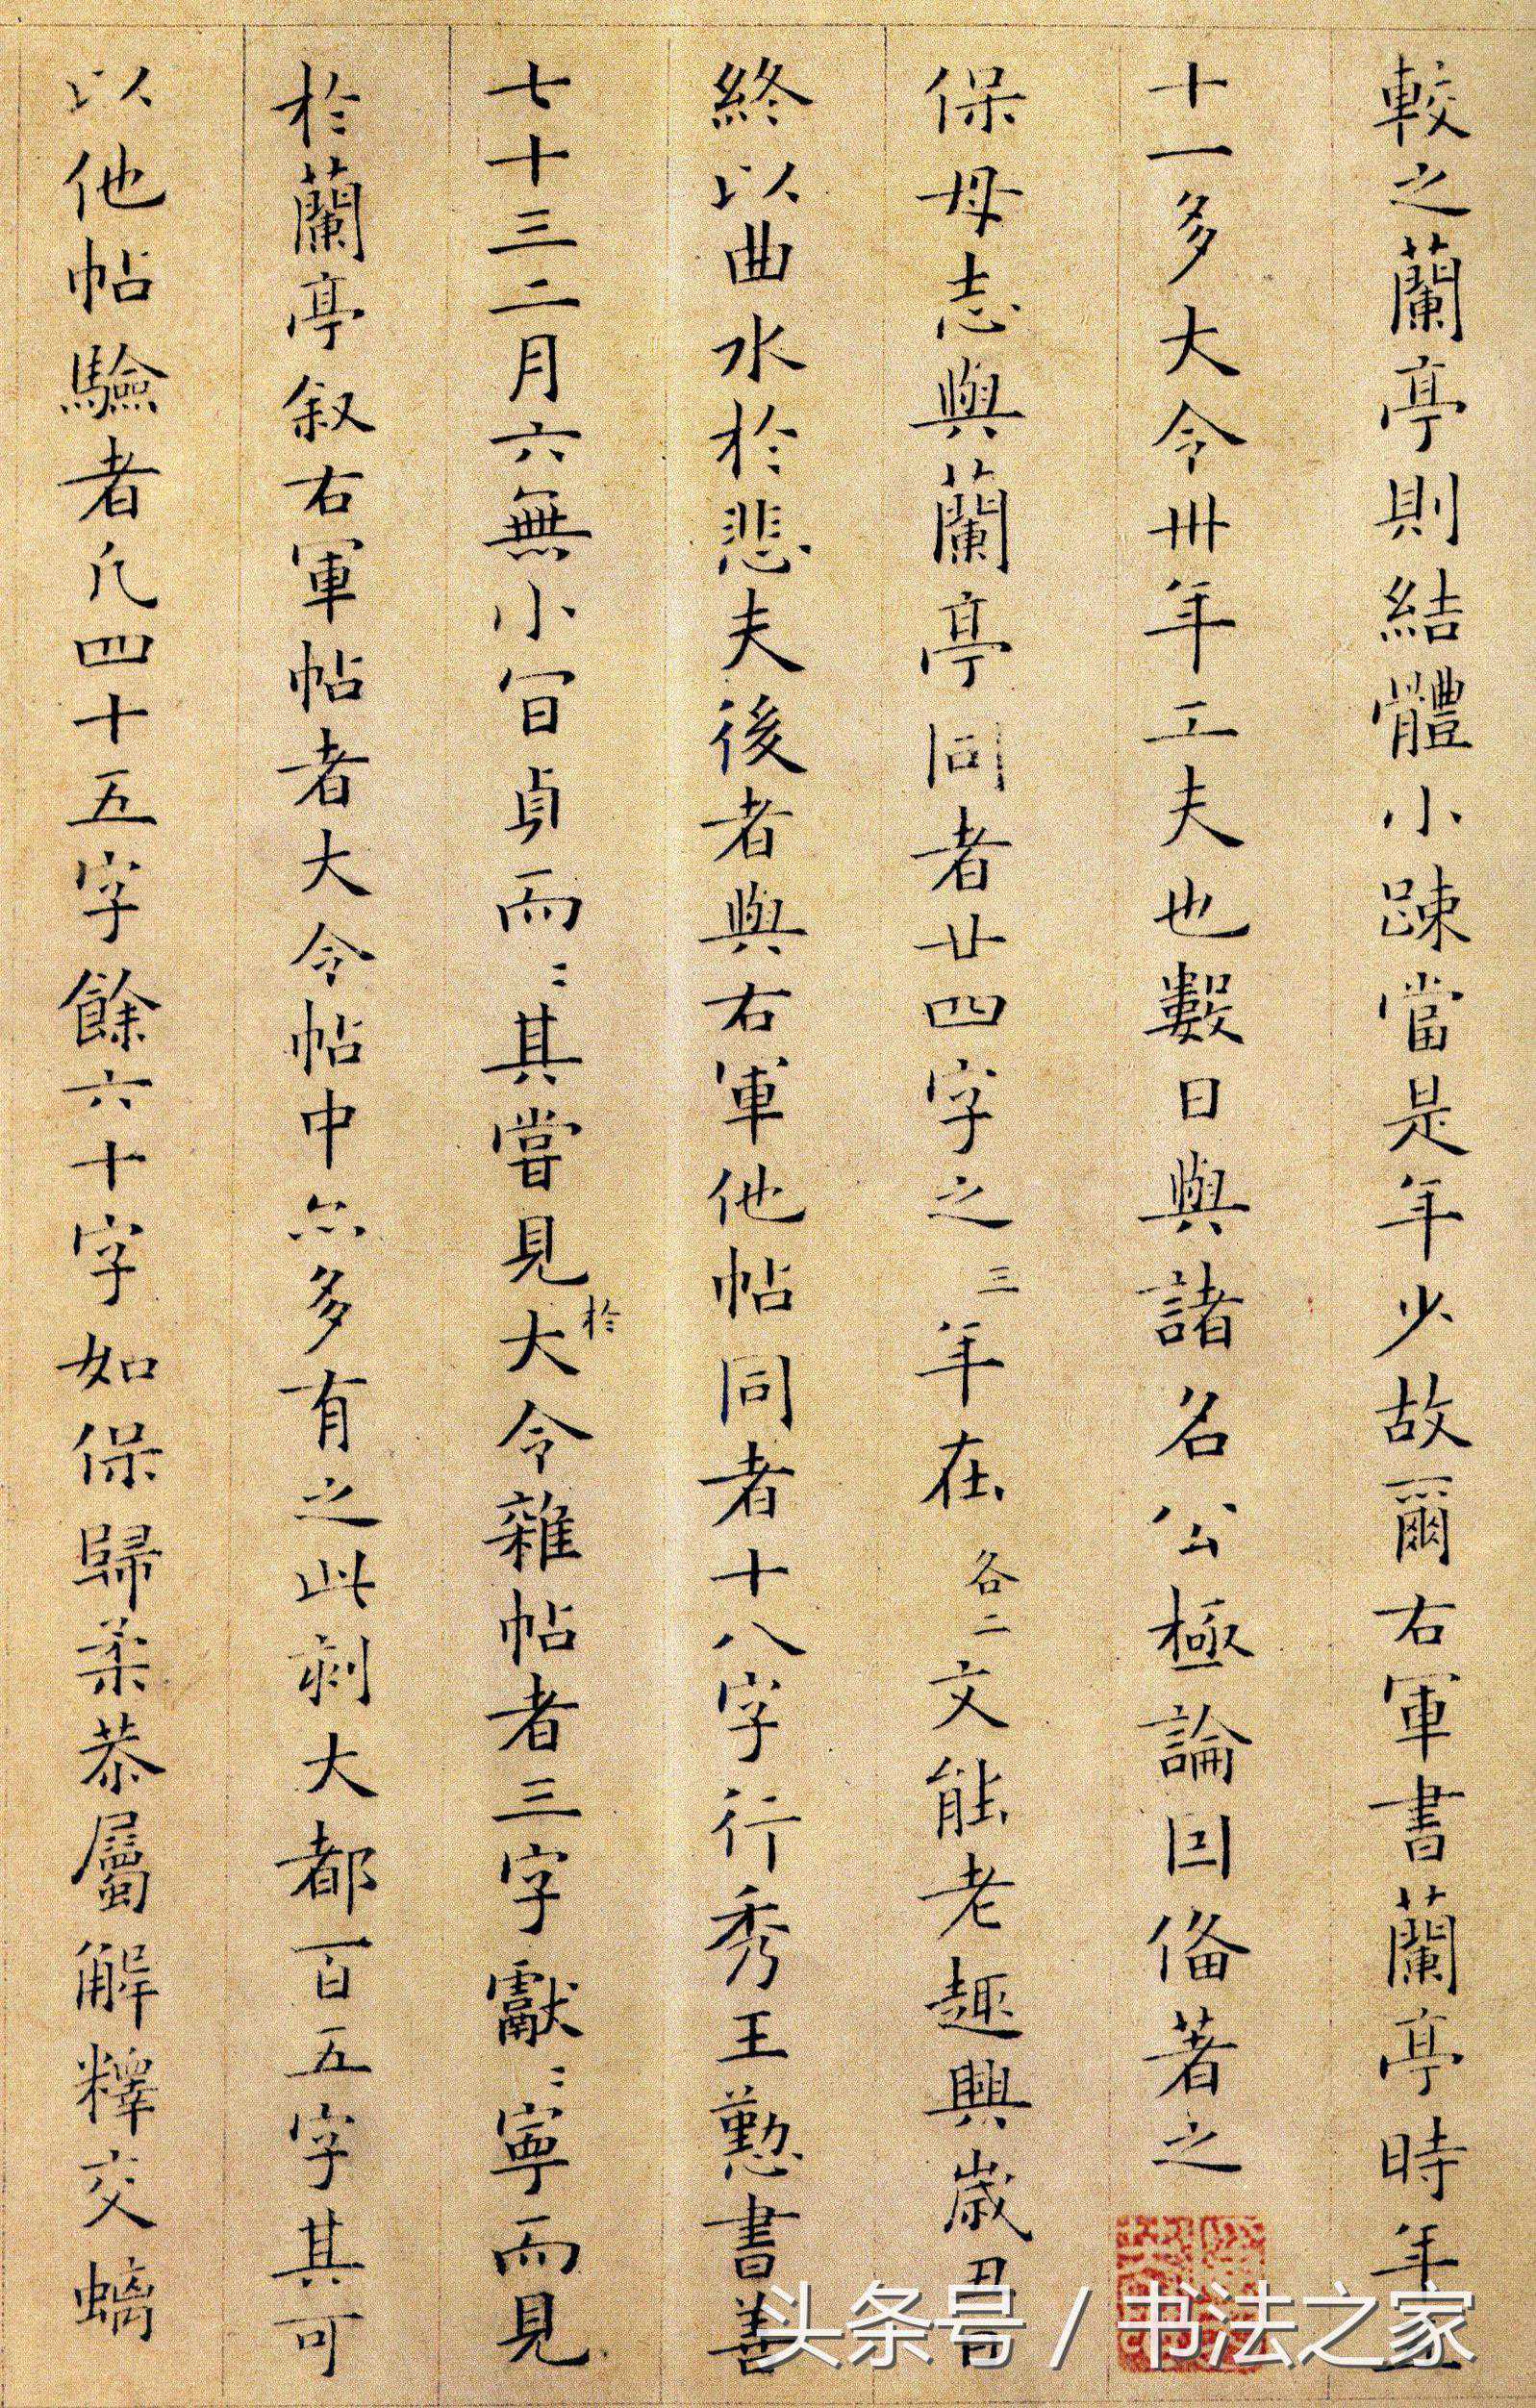 較之蘭亭則結體小踈當是年少故爾右軍書蘭亭時年五
十一多大令卅年工夫也數日與諸名公極論因俻著之
保母志與蘭亭同者廿四字之三年在各二文能老趣興歲丑
終以曲水於悲夫後者與右軍他帖同者十八字行秀王懃書善
七十三二月六無小冝貞而〻其嘗見於大令雜帖者三字獻〻寧而見
於蘭亭叙右軍帖者大令帖中亦多有之此刻大都百五字其可
以他帖驗者凡四十五字餘六十字如保歸柔恭屬解釋交螭
头条号 / 书法之家